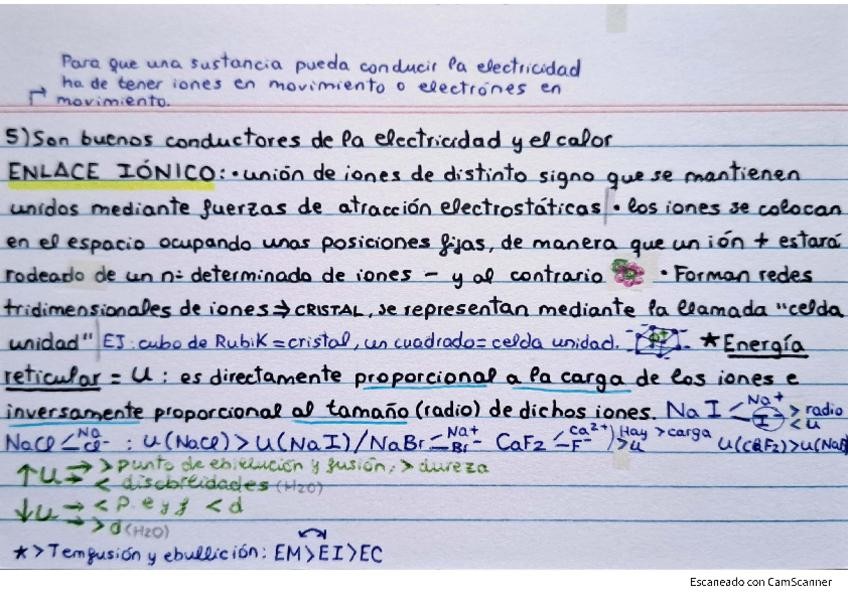 Para que una sustancia pueda conducir la electricidad
ha de tener iones en movimiento o electrónes en
movimiento.
5) Son buenos conductores de la electricidad y el calor
ENLACE IÓNICO: • unión de iones de distinto signo que se mantienen
unidos mediante fuerzas de atracción electrostáticas • los iones se colocan
en el espacio ocupando unas posiciones fijas, de manera que un ión + estará
rodeado de un nº determinado de iones - y al contrario • Forman redes
tridimensionales de iones → CRISTAL, se representan mediante la llamada "celda
unidad" EJ: cubo de Rubik = cristal, un cuadrado = celda unidad. * Energía
reticular = U : es directamente proporcional a la carga de los iones e
inversamente proporcional al tamaño (radio) de dichos iones. NaI < Na+ I- > radio < u
NaCl < Na Cl- : U(NaCl) > U(NaI) / NaBr < Na+ Br- CaF2 < Ca2+ F- ) Hay > carga > u U(CaF2)>U(NaBr
↑U → > punto de ebielución y fusión, > dureza
→ < discbreidades (H2O)
↓U → < p. e y f < d
→ > d (H2O)
* > Temfusión y ebullición: EM > EI > EC
Escaneado con CamScanner